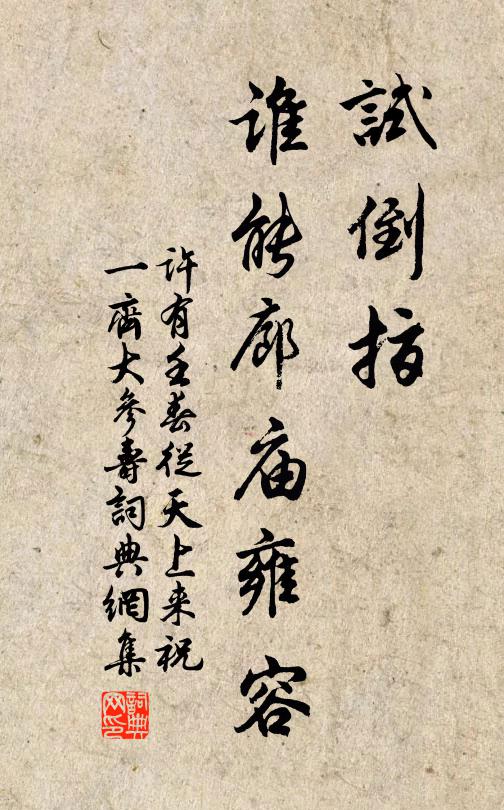 試倒指
誰能廊庙雍容
許有壬春從天上来祝
一齋大參壽詞典網集
詞典
网印